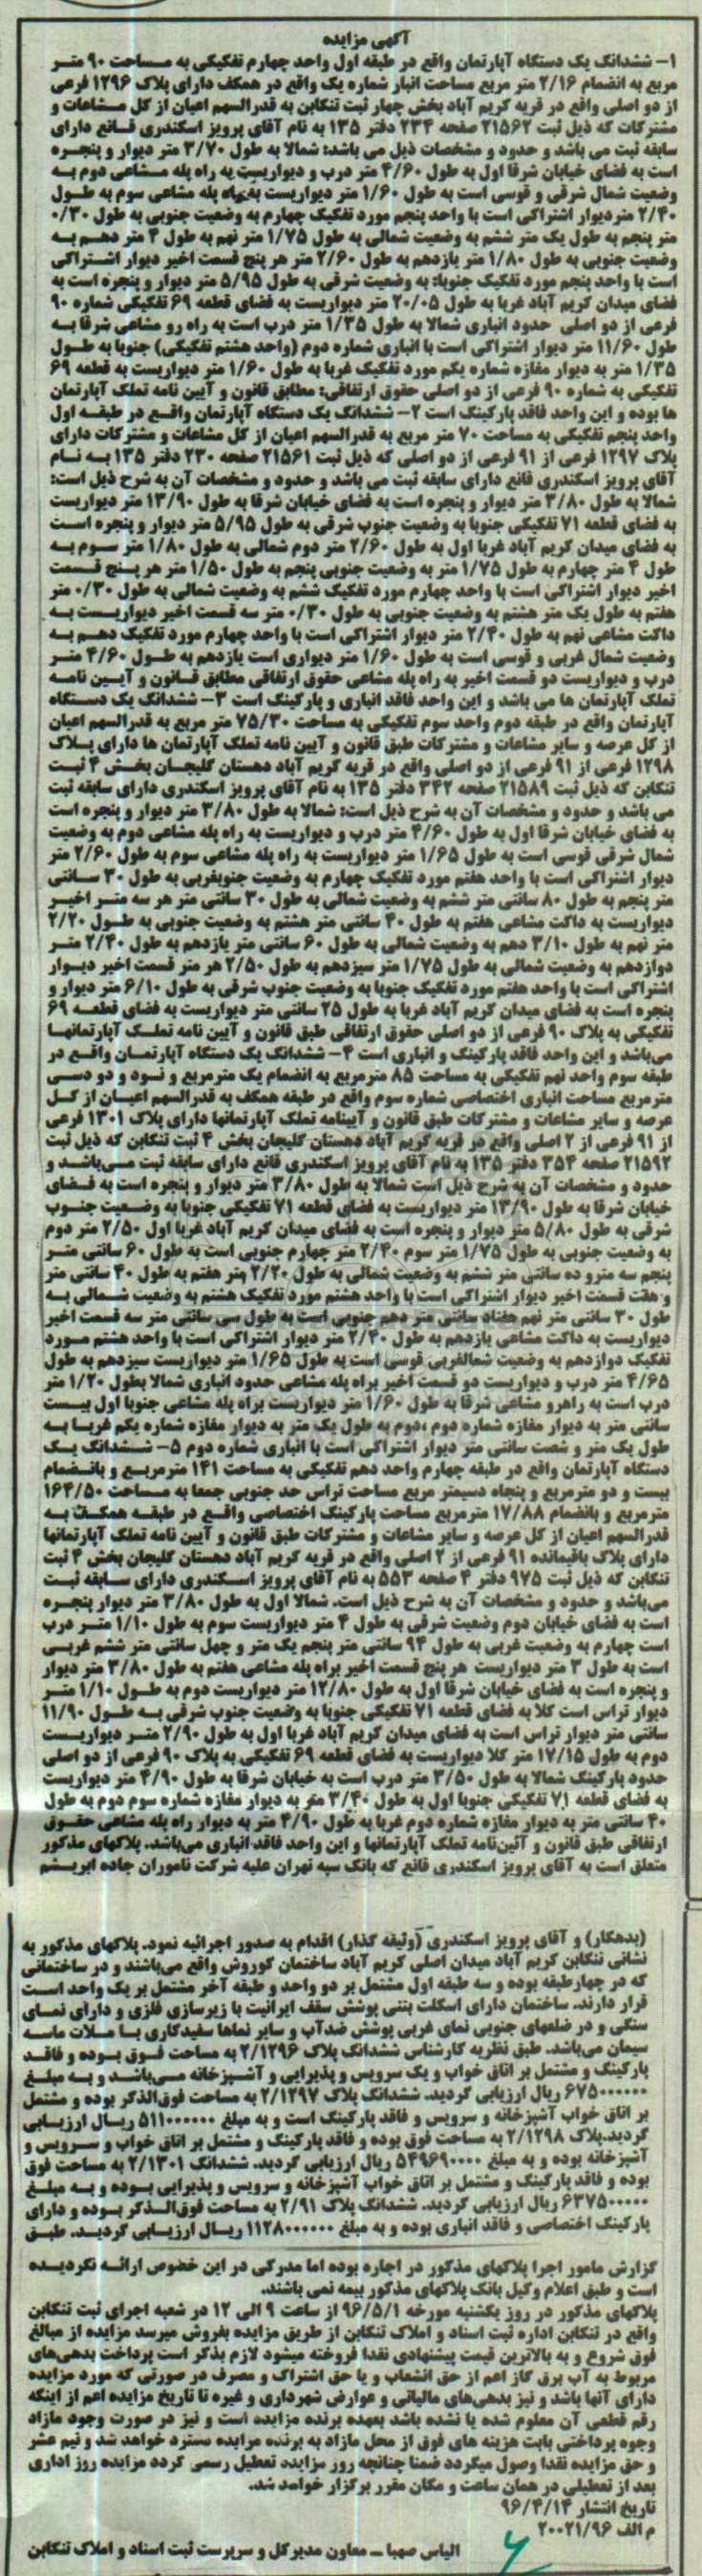 آگهی مزایده
۱- ششدانگ یک دستگاه آپارتمان واقع در طبقه اول واحد چهارم تفکیکی به مساحت ۹۰ متر
مربع به انضمام ۲/۱۶ متر مربع مساحت انبار شماره یک واقع در همکف دارای پلاک ۱۲۹۶ فرعی
از دو اصلی واقع در قریه کریم آباد بخش چهار ثبت تنکابن به قدرالسهم اعیان از کل مشاعات و
مشترکات که ذیل ثبت ۲۱۵۶۲ صفحه ۲۳۴ دفتر ۱۳۵ به نام آقای پرویز اسکندری قانع دارای
سابقه ثبت می باشد و حدود و مشخصات ذیل می باشد: شمالا به طول ۳/۷۰ متر دیوار و پنجره
است به فضای خیابان شرقا اول به طول ۴/۶۰ متر درب و دیواریست به راه پله مشاعی دوم به
وضعیت شمال شرقی و قوسی است به طول ۱/۶۰ متر دیواریست به راه پله مشاعی سوم به طول
۲/۴۰ متردیوار اشتراکی است با واحد پنجم مورد تفکیک چهارم به وضعیت جنوبی به طول ۰/۳۰
متر پنجم به طول یک متر ششم به وضعیت شمالی به طول ۱/۷۵ متر نهم به طول ۴ متر دهم به
وضعیت جنوبی به طول ۱/۸۰ متر یازدهم به طول ۲/۶۰ متر هر پنج قسمت اخیر دیوار اشتراکی
است با واحد پنجم مورد تفکیک جنوبا: به وضعیت شرقی به طول ۵/۹۵ متر دیوار و پنجره است به
فضای میدان کریم آباد غربا به طول ۲۰/۰۵ متر دیواریست به فضای قطعه ۶۹ تفکیکی شماره ۹۰
فرعی از دو اصلی حدود انباری شمالا به طول ۱/۳۵ متر درب است به راه رو مشاعی شرقا به
طول ۱۱/۶۰ متر دیوار اشتراکی است با انباری شماره دوم (واحد هشتم تفکیکی) جنوبا به طول
۱/۳۵ متر به دیوار مغازه شماره یکم مورد تفکیک غربا به طول ۱/۶۰ متر دیواریست به قطعه ۶۹
تفکیکی به شماره ۹۰ فرعی از دو اصلی حقوق ارتفاقی: مطابق قانون و آیین نامه تملک آپارتمان
ها بوده و این واحد فاقد پارکینگ است ۲- ششدانگ یک دستگاه آپارتمان واقع در طبقه اول
واحد پنجم تفکیکی به مساحت ۷۰ متر مربع به قدرالسهم اعیان از کل مشاعات و مشترکات دارای
پلاک ۱۲۹۷ فرعی از ۹۱ فرعی از دو اصلی که ذیل ثبت ۲۱۵۶۱ صفحه ۲۳۰ دفتر ۱۳۵ به نام
آقای پرویز اسکندری قانع دارای سابقه ثبت می باشد و حدود و مشخصات آن به شرح ذیل است:
شمالا به طول ۳/۸۰ متر دیوار و پنجره است به فضای خیابان شرقا به طول ۱۳/۹۰ متر دیواریست
به فضای قطعه ۷۱ تفکیکی جنوبا به وضعیت جنوب شرقی به طول ۵/۹۵ متر دیوار و پنجره است
به فضای میدان کریم آباد غربا اول به طول ۲/۶۰ متر دوم شمالی به طول ۱/۸۰ متر سوم به
طول ۴ متر چهارم به طول ۱/۷۵ متر به وضعیت جنوبی پنجم به طول ۱/۵۰ متر هر پنج قسمت
اخیر دیوار اشتراکی است با واحد چهارم مورد تفکیک ششم به وضعیت شمالی به طول ۰/۳۰ متر
هفتم به طول یک متر هشتم به وضعیت جنوبی به طول ۰/۳۰ متر سه قسمت اخیر دیواریست به
داکت مشاعی نهم به طول ۲/۴۰ متر دیوار اشتراکی است با واحد چهارم مورد تفکیک دهم به
وضعیت شمال غربی و قوسی است به طول ۱/۶۰ متر دیواری است یازدهم به طول ۴/۶۰ متر
درب و دیواریست دو قسمت اخیر به راه پله مشاعی حقوق ارتفاقی مطابق قانون و آیین نامه
تملک آپارتمان ها می باشد و این واحد فاقد انباری و پارکینگ است ۳- ششدانگ یک دستگاه
آپارتمان واقع در طبقه دوم واحد سوم تفکیکی به مساحت ۷۵/۳۰ متر مربع به قدرالسهم اعیان
از کل عرصه و سایر مشاعات و مشترکات طبق قانون و آیین نامه تملک آپارتمان ها دارای پلاک
۱۲۹۸ فرعی از ۹۱ فرعی از دو اصلی واقع در قریه کریم آباد دهستان گلیجان بخش ۴ ثبت
تنکابن که ذیل ثبت ۲۱۵۸۹ صفحه ۳۴۲ دفتر ۱۳۵ به نام آقای پرویز اسکندری دارای سابقه ثبت
می باشد و حدود و مشخصات آن به شرح ذیل است: شمالا به طول ۳/۸۰ متر دیوار و پنجره است
به فضای خیابان شرقا اول به طول ۴/۶۰ متر درب و دیواریست به راه پله مشاعی دوم به وضعیت
شمال شرقی قوسی است به طول ۱/۶۵ متر دیواریست به راه پله مشاعی سوم به طول ۲/۶۰ متر
دیوار اشتراکی است با واحد هفتم مورد تفکیک چهارم به وضعیت جنوبغربی به طول ۳۰ سانتی
متر پنجم به طول ۸۰ سانتی متر ششم به وضعیت شمالی به طول ۳۰ سانتی متر هر سه متر اخیر
دیواریست به داکت مشاعی هفتم به طول ۴۰ سانتی متر هشتم به وضعیت جنوبی به طول ۲/۲۰
متر نهم به طول ۳/۱۰ دهم به وضعیت شمالی به طول ۶۰ سانتی متر یازدهم به طول ۲/۴۰ متر
دوازدهم به وضعیت شمالی به طول ۱/۷۵ متر سیزدهم به طول ۲/۵۰ هر متر قسمت اخیر دیوار
اشتراکی است با واحد هفتم مورد تفکیک جنوبا به وضعیت جنوب شرقی به طول ۶/۱۰ متر دیوار و
پنجره است به فضای میدان کریم آباد غربا به طول ۲۵ سانتی متر دیواریست به فضای قطعه ۶۹
تفکیکی به پلاک ۹۰ فرعی از دو اصلی حقوق ارتفاقی طبق قانون و آیین نامه تملک آپارتمانها
می‌باشد و این واحد فاقد پارکینگ و انباری است ۴- ششدانگ یک دستگاه آپارتمان واقع در
طبقه سوم واحد نهم تفکیکی به مساحت ۸۵ مترمربع به انضمام یک مترمربع و نود و دو دسی
مترمربع مساحت انباری اختصاصی شماره سوم واقع در طبقه همکف به قدرالسهم اعیان از کل
عرصه و سایر مشاعات و مشترکات طبق قانون و آیینامه تملک آپارتمانها دارای پلاک ۱۳۰۱ فرعی
از ۹۱ فرعی از ۲ اصلی واقع در قریه کریم آباد دهستان گلیجان بخش ۴ ثبت تنکابن که ذیل ثبت
۲۱۵۹۲ صفحه ۳۵۴ دفتر ۱۳۵ به نام آقای پرویز اسکندری قانع دارای سابقه ثبت می‌باشد و
حدود و مشخصات آن به شرح ذیل است شمالا به طول ۳/۸۰ متر دیوار و پنجره است به فضای
خیابان شرقا به طول ۱۳/۹۰ متر دیواریست به فضای قطعه ۷۱ تفکیکی جنوبا به وضعیت جنوب
شرقی به طول ۵/۸۰ متر دیوار و پنجره است به فضای میدان کریم آباد غربا اول ۲/۵۰ متر دوم
به وضعیت جنوبی به طول ۱/۷۵ متر سوم ۲/۴۰ متر چهارم جنوبی است به طول ۶۰ سانتی متر
پنجم سه مترو ده سانتی متر ششم به وضعیت شمالی به طول ۲/۲۰ متر هفتم به طول ۴۰ سانتی متر
و هفت قسمت اخیر دیوار اشتراکی است با واحد هشتم مورد تفکیک هشتم به وضعیت شمالی به
طول ۳۰ سانتی متر نهم هفتاد سانتی متر دهم جنوبی است به طول سی سانتی متر سه قسمت اخیر
دیواریست به داکت مشاعی یازدهم به طول ۲/۴۰ متر دیوار اشتراکی است با واحد هشتم مورد
تفکیک دوازدهم به وضعیت شمالغربی قوسی است به طول ۱/۶۵ متر دیواریست سیزدهم به طول
۴/۶۵ متر درب و دیواریست دو قسمت اخیر براه پله مشاعی حدود انباری شمالا بطول ۱/۲۰ متر
درب است به راهرو مشاعی شرقا به طول ۱/۶۰ متر دیواریست براه پله مشاعی جنوبا اول بیست
سانتی متر به دیوار مغازه شماره دوم ،دوم به طول یک متر به دیوار مغازه شماره یکم غربا به
طول یک متر و شصت سانتی متر دیوار اشتراکی است با انباری شماره دوم ۵- ششدانگ یک
دستگاه آپارتمان واقع در طبقه چهارم واحد دهم تفکیکی به مساحت ۱۴۱ مترمربع و بانضمام
بیست و دو مترمربع و پنجاه دسیمتر مربع مساحت تراس حد جنوبی جمعا به مساحت ۱۶۴/۵۰
مترمربع و بانضمام ۱۷/۸۸ مترمربع مساحت پارکینگ اختصاصی واقع در طبقه همکف به
قدرالسهم اعیان از کل عرصه و سایر مشاعات و مشترکات طبق قانون و آیین نامه تملک آپارتمانها
دارای پلاک باقیمانده ۹۱ فرعی از ۲ اصلی واقع در قریه کریم آباد دهستان گلیجان بخش ۴ ثبت
تنکابن که ذیل ثبت ۹۷۵ دفتر ۴ صفحه ۵۵۳ به نام آقای پرویز اسکندری دارای سابقه ثبت
می‌باشد و حدود و مشخصات آن به شرح ذیل است. شمالا اول به طول ۳/۸۰ متر دیوار پنجره
است به فضای خیابان دوم وضعیت شرقی به طول ۴ متر دیواریست سوم به طول ۱/۱۰ متر درب
است چهارم به وضعیت غربی به طول ۹۴ سانتی متر پنجم یک متر و چهل سانتی متر ششم غربی
است به طول ۳ متر دیواریست هر پنج قسمت اخیر براه پله مشاعی هفتم به طول ۳/۸۰ متر دیوار
و پنجره است به فضای خیابان شرقا اول به طول ۱۲/۸۰ متر دیواریست دوم به طول ۱/۱۰ متر
دیوار تراس است کلا به فضای قطعه ۷۱ تفکیکی جنوبا به وضعیت جنوب شرقی به طول ۱۱/۹۰
سانتی متر دیوار تراس است به فضای میدان کریم آباد غربا اول به طول ۲/۹۰ متر دیواریست
دوم به طول ۱۷/۱۵ متر کلا دیواریست به فضای قطعه ۶۹ تفکیکی به پلاک ۹۰ فرعی از دو اصلی
حدود پارکینگ شمالا به طول ۳/۵۰ متر درب است به خیابان شرقا به طول ۴/۹۰ متر دیواریست
به فضای قطعه ۷۱ تفکیکی جنوبا اول به طول ۳/۴۰ متر به دیوار مغازه شماره سوم دوم به طول
۴۰ سانتی متر به دیوار مغازه شماره دوم غربا به طول ۴/۹۰ متر به دیوار راه پله مشاعی حقوق
ارتفاقی طبق قانون و آئین‌نامه تملک آپارتمانها و این واحد فاقد انباری می‌باشد. پلاکهای مذکور
متعلق است به آقای پرویز اسکندری قانع که بانک سپه تهران علیه شرکت ناموران جاده ابریشم
(بدهکار) و آقای پرویز اسکندری (وثیقه گذار) اقدام به صدور اجرائیه نمود. پلاکهای مذکور به
نشانی تنکابن کریم آباد میدان اصلی کریم آباد ساختمان کوروش واقع می‌باشند و در ساختمانی
که در چهارطبقه بوده و سه طبقه اول مشتمل بر دو واحد و طبقه آخر مشتمل بر یک واحد است
قرار دارند. ساختمان دارای اسکلت بتنی پوشش سقف ایرانیت با زیرسازی فلزی و دارای نمای
سنگی و در ضلعهای جنوبی نمای غربی پوشش ضدآب و سایر نماها سفیدکاری با ملات ماسه
سیمان می‌باشد. طبق نظریه کارشناس ششدانگ پلاک ۲/۱۲۹۶ به مساحت فوق بوده و فاقد
پارکینگ و مشتمل بر اتاق خواب و یک سرویس و پذیرایی و آشپزخانه می‌باشد و به مبلغ
۶۷۵۰۰۰۰۰۰ ریال ارزیابی گردید. ششدانگ پلاک ۲/۱۲۹۷ به مساحت فوق‌الذکر بوده و مشتمل
بر اتاق خواب آشپزخانه و سرویس و فاقد پارکینگ است و به مبلغ ۵۱۱۰۰۰۰۰۰ ریال ارزیابی
گردید.پلاک ۲/۱۲۹۸ به مساحت فوق بوده و فاقد پارکینگ و مشتمل بر اتاق خواب و سرویس و
آشپزخانه بوده و به مبلغ ۵۴۹۶۹۰۰۰۰ ریال ارزیابی گردید. ششدانگ ۲/۱۳۰۱ به مساحت فوق
بوده و فاقد پارکینگ و مشتمل بر اتاق خواب آشپزخانه و سرویس و پذیرایی بوده و به مبلغ
۶۳۷۵۰۰۰۰۰ ریال ارزیابی گردید. ششدانگ پلاک ۲/۹۱ به مساحت فوق‌الذکر بوده و دارای
پارکینگ اختصاصی و فاقد انباری بوده و به مبلغ ۱۱۲۸۰۰۰۰۰۰ ریال ارزیابی گردید. طبق
گزارش مامور اجرا پلاکهای مذکور در اجاره بوده اما مدرکی در این خصوص ارائه نگردیده
است و طبق اعلام وکیل بانک پلاکهای مذکور بیمه نمی باشند.
پلاکهای مذکور در روز یکشنبه مورخه ۹۶/۵/۱ از ساعت ۹ الی ۱۲ در شعبه اجرای ثبت تنکابن
واقع در تنکابن اداره ثبت اسناد و املاک تنکابن از طریق مزایده بفروش میرسد مزایده از مبالغ
فوق شروع و به بالاترین قیمت پیشنهادی نقدا فروخته میشود لازم بذکر است پرداخت بدهی‌های
مربوط به آب برق گاز اعم از حق انشعاب و یا حق اشتراک و مصرف در صورتی که مورد مزایده
دارای آنها باشد و نیز بدهی‌های مالیاتی و عوارض شهرداری و غیره تا تاریخ مزایده اعم از اینکه
رقم قطعی آن معلوم شده یا نشده باشد بعهده برنده مزایده است و نیز در صورت وجود مازاد
وجوه پرداختی بابت هزینه های فوق از محل مازاد به برنده مزایده مسترد خواهد شد و نیم عشر
و حق مزایده نقدا وصول میگردد ضمنا چنانچه روز مزایده تعطیل رسمی گردد مزایده روز اداری
بعد از تعطیلی در همان ساعت و مکان مقرر برگزار خواهد شد.
تاریخ انتشار ۹۶/۴/۱۴
م الف ۲۰۰۲۱/۹۶
الیاس صهبا ـ معاون مدیرکل و سرپرست ثبت اسناد و املاک تنکابن